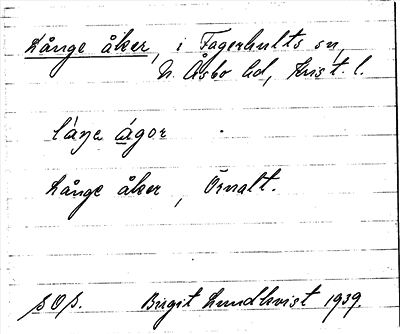 Långe åker, i Fagerhults sn,
N. Åsbo hd, Krist. l.
låŋe ágor
Långe åker, Örnalt.
Birgit Lundkvist 1939.